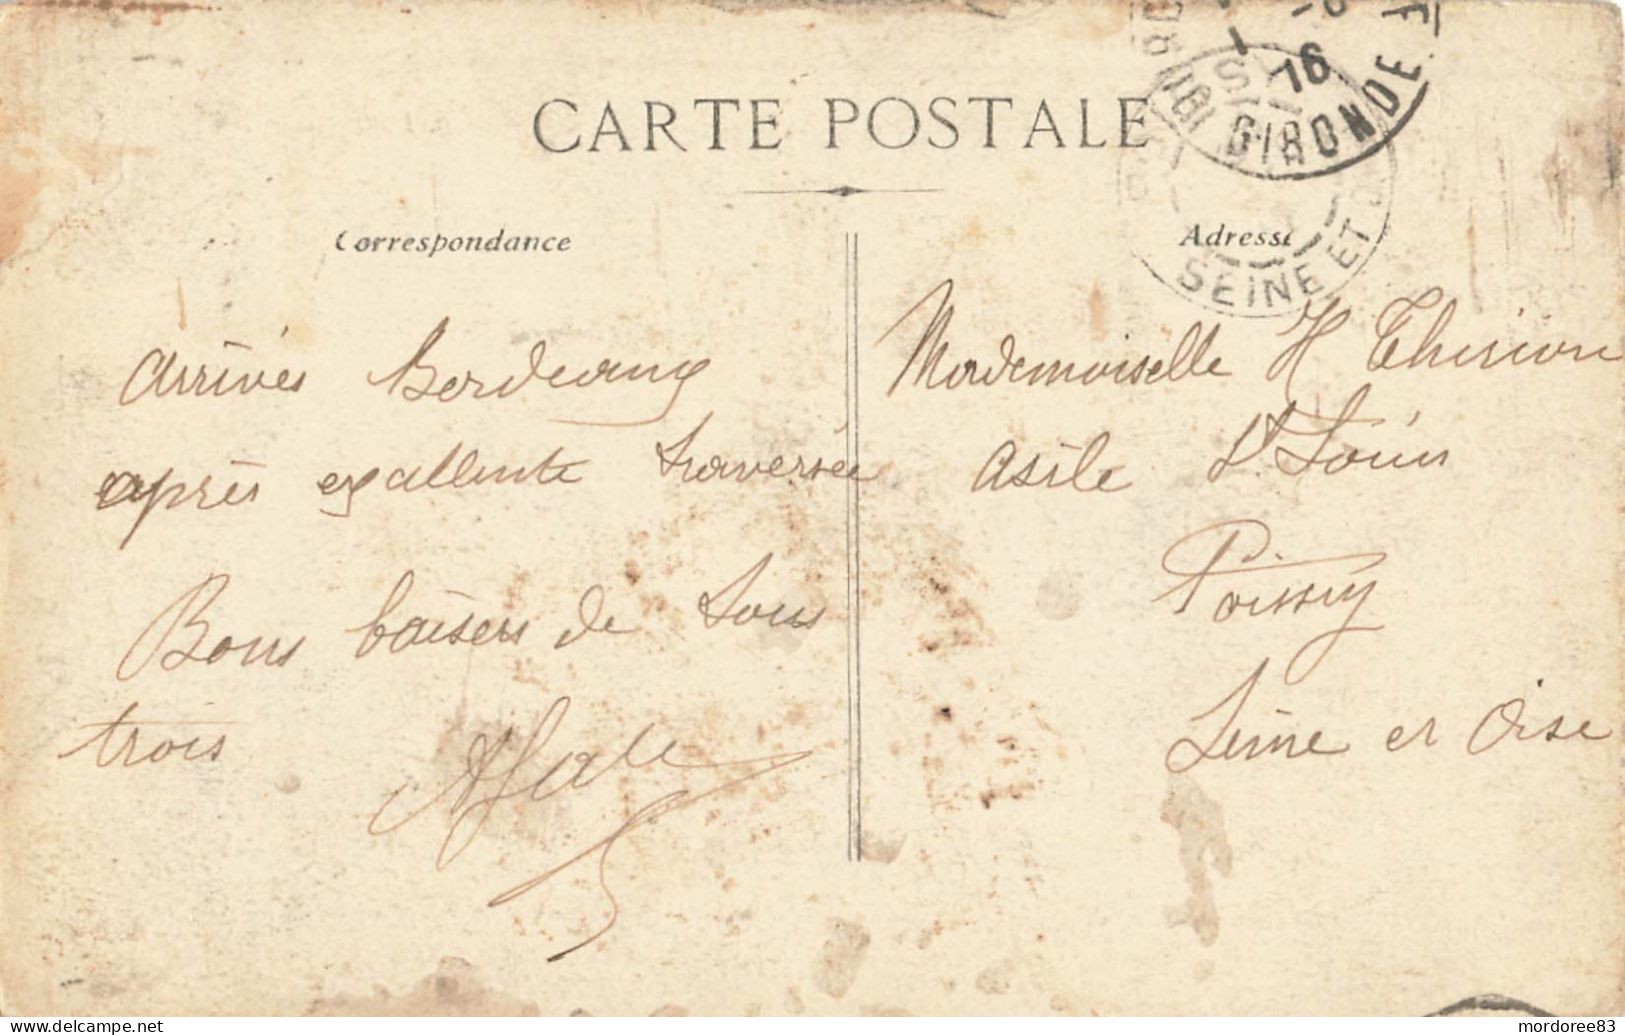 CARTE POSTALE
Correspondance
Adresse
GIRONDE
16
SEINE ET
Arrivés Bordeaux
après exallente traversée
Bons baisers de tous
trois
Mademoiselle H Thirion
asile St Louis
Poissy
Seine et Oise
www.delcampe.net
mordoree83